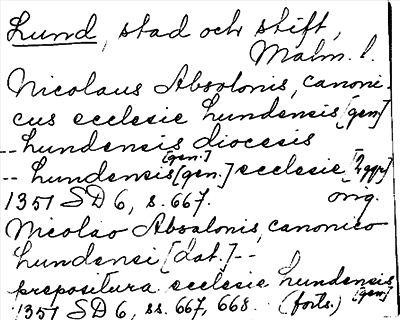 Lund, stad och stift,
Malm. l.
Nicolaus Absolonis, canoni-
cus ecclesie Lundensis [gen]
-- Lundensis diocesis
[gen.]
-- Lundensis [gen.] ecclesie [2 ggr]
1351 SD 6, s. 667. orig.
Nicolao Absolonis, canonico
Lundensi [dat.] --
prepositura ecclesie Lundensis
1351 SD 6, ss. 667, 668. (forts.) [gen]